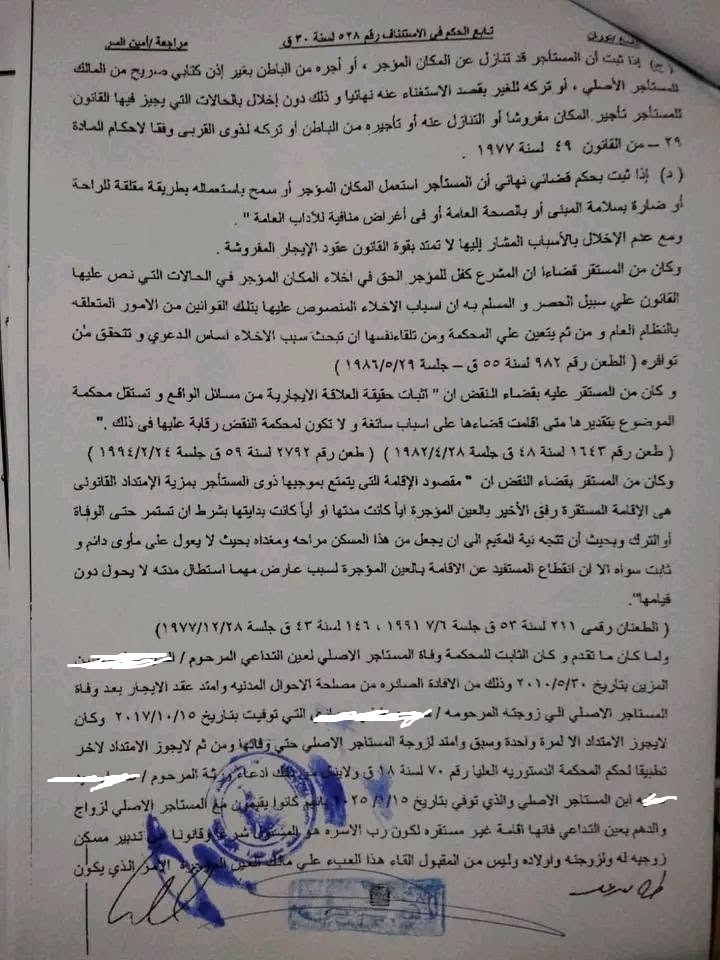 تابع الحكم في الاستئناف رقم ٥٢٨ لسنة ٣٠ ق
مراجعة /أمين السر
( ج ) إذا ثبت أن المستأجر قد تنازل عن المكان المؤجر ، أو أجره من الباطن بغير إذن كتابي صريح من المالك
للمستأجر الأصلي ، أو تركه للغير بقصد الاستغناء عنه نهائيا و ذلك دون إخلال بالحالات التي يجيز فيها القانون
للمستأجر تأجير المكان مفروشا أو التنازل عنه أو تأجيره من الباطن أو تركه لذوى القربى وفقا لاحكام المادة
٢٩ – من القانون ٤٩ لسنة ١٩٧٧ .
( د ) إذا ثبت بحكم قضائي نهائي أن المستأجر استعمل المكان المؤجر أو سمح باستعماله بطريقة مقلقة للراحة
أو ضارة بسلامة المبنى أو بالصحة العامة أو فى أغراض منافية للآداب العامة " .
ومع عدم الإخلال بالأسباب المشار إليها لا تمتد بقوة القانون عقود الإيجار المفروشة .
وكان من المستقر قضاءا ان المشرع كفل للمؤجر الحق في اخلاء المكان المؤجر في الحالات التي نص عليها
القانون علي سبيل الحصر و المسلم به ان اسباب الاخلاء المنصوص عليها بتلك القوانين من الامور المتعلقه
بالنظام العام و من ثم يتعين علي المحكمة ومن تلقاءنفسها ان تبحث سبب الاخلاء اساس الدعوي و تتحقق من
توافره ( الطعن رقم ٩٨٢ لسنة ٥٥ ق – جلسة ١٩٨٦/٥/٢٩ )
و كان من المستقر عليه بقضاء النقض ان " اثبات حقيقة العلاقة الايجارية من مسائل الواقع و تستقل محكمة
الموضوع بتقديرها متى اقامت قضاءها على اسباب سائغة و لا تكون لمحكمة النقض رقابة عليها فى ذلك ."
( طعن رقم ١٦٤٣ لسنة ٤٨ ق جلسة ١٩٨٢/٤/٢٨ ) ( طعن رقم ٢٧٩٢ لسنة ٥٩ ق جلسة ١٩٩٤/٢/٢٤ )
وكان من المستقر بقضاء النقض ان " مقصود الإقامة التي يتمتع بموجبها ذوى المستأجر بمزية الإمتداد القانونى
هى الإقامة المستقرة رفق الأخير بالعين المؤجرة اياً كانت مدتها أو أياً كانت بدايتها بشرط ان تستمر حتى الوفاة
أوالترك وبحيث أن تتجه نية المقيم الى ان يجعل من هذا المسكن مراحه ومغداه بحيث لا يعول على مأوى دائم و
ثابت سواه الا ان انقطاع المستفيد عن الاقامة بالعين المؤجرة لسبب عارض مهما استطال مدته لا يحول دون
قيامها".
( الطعنان رقمى ٢١١ لسنة ٥٣ ق جلسة ٧/٦ ١٩٩١ ، ١٤٦ لسنة ٤٣ ق جلسة ١٩٧٧/١٢/٢٨)
ولما كان ما تقدم و كان الثابت للمحكمة وفاة المستاجر الاصلي لعين التداعي المرحوم /
المزين بتاريخ ٢٠١٠/٥/٣٠ وذلك من الافادة الصادره من مصلحة الاحوال المدنيه وامتد عقد الايجار بعد وفاة
المستاجر الاصلي الي زوجته المرحومه / التي توفيت بتاريخ ٢٠١٧/١٠/١٥ وكان
لايجوز الامتداد الا لمرة واحدة وسبق وامتد لزوجة المستاجر الاصلي حتي وفاتها ومن ثم لايجوز الامتداد لاخر
تطبيقا لحكم المحكمة الدستوريه العليا رقم ٧٠ لسنة ١٨ ق ولاينال من ذلك ادعاء ورثة المرحوم /
ابن المستاجر الاصلي والذي توفي بتاريخ بانهم كانوا يقيمون مع المستاجر الاصلي لزواج
والدهم بعين التداعي فانها اقامة غير مستقره لكون رب الاسره هو المسئول شرعا وقانونا عن تدبير مسكن
زوجيه له ولزوجته واولاده وليس من المقبول القاء هذا العبء علي مالك العين المؤجرة الامر الذي يكون